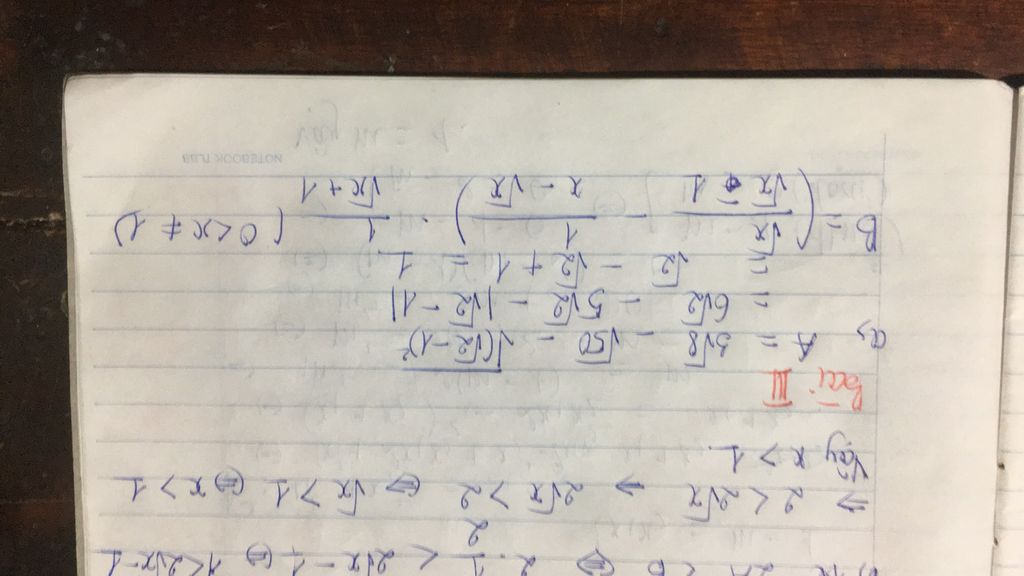 2A < B ⇔ 2 · 1/2 < 2√x - 1 ⇔ 1 < 2√x - 1
⇒ 2 < 2√x ⇒ 2√x > 2 ⇔ √x > 1 ⇔ x > 1
Vậy x > 1.
Bài III
a, A = 3√8 - √50 - √(√2 - 1)²
= 6√2 - 5√2 - |√2 - 1|
= √2 - √2 + 1 = 1.
B = (√x/(√x - 1) - 1/(x - √x)) · 1/(√x + 1) (0 < x ≠ 1)
NOTEBOOK